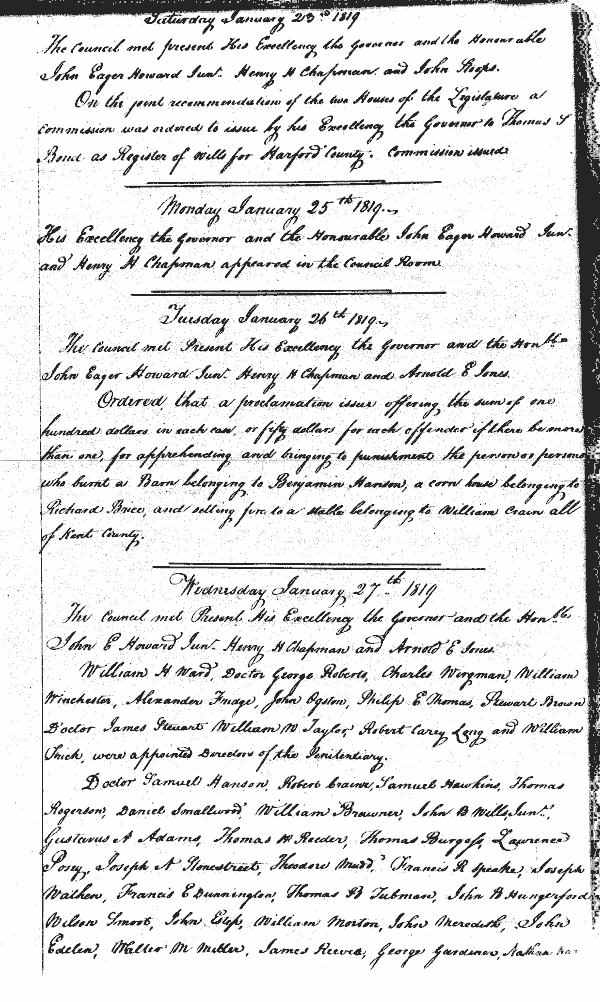 Saturday January 23d 1819
The Council met present His Excellency the Governor and the Honourable
John Eager Howard Junr. Henry H Chapman and John Stoops.
On the joint recommendation of the two Houses of the Legislature a
commission was ordered to issue by his Excellency the Governor to Thomas S
Bond as Register of Wills for Harford County. Commission issued
Monday January 25th 1819
His Excellency the Governor and the Honourable John Eager Howard Junr.
and Henry H Chapman appeared in the Council Room
Tuesday January 26th 1819
The Council met Present His Excellency the Governor and the Honble
John Eager Howard Junr. Henry H Chapman and Arnold E Jones.
Ordered, that a proclamation issue offering the sum of one
hundred dollars in each case, or fifty dollars for each offender if there be more
than one, for apprehending and bringing to punishment the person or persons
who burnt a Barn belonging to Benjamin Hanson, a corn house belonging to
Richard Brice, and setting fire to a stable belonging to William Crain all
of Kent County.
Wednesday January 27th 1819
The Council met Present His Excellency the Governor and the Honble
John E Howard Junr. Henry H Chapman and Arnold E Jones
William H Ward, Doctor George Roberts, Charles Wirgman, William
Winchester, Alexander Fridge, John Ogston, Philip E Thomas, Stewart Brown
Doctor James Steuart William W Taylor Robert Carey Long and William
were appointed Directors of the Penitentiary.
Doctor Samuel Hanson, Robert Samuel Hawkins, Thomas
Rogerson, Daniel Smallwood, William Brawner, John B Wills, Junr.,
Gustavus A Adams, Thomas A Reeder, Thomas Burgess, Lawrence
Posey, Joseph A Stonestreet, Theodore Mudd, Francis R Speake, Joseph
Wathen, Francis E Dunnington, Thomas B Tubman, John B Hungerford
Wilson Smoot, John Estep, William Morton, John Meredith, John
Edelen, Walter M Miller, James Reeves, George Gardiner, Nathan